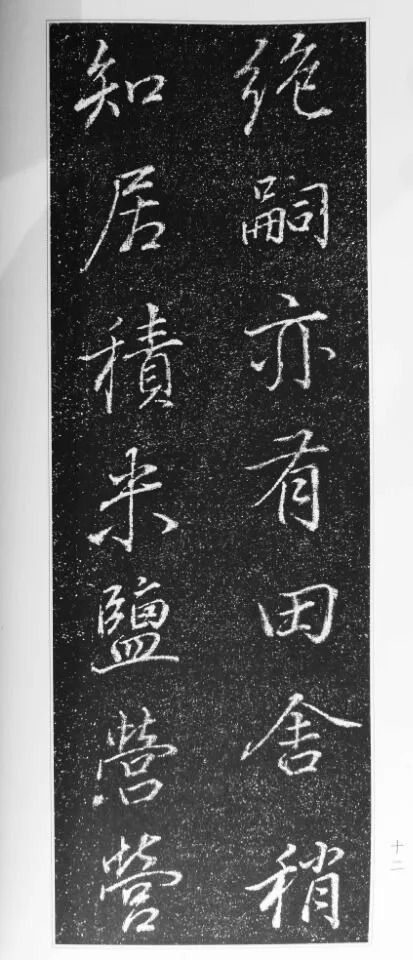 绝嗣亦有田舍稍
知居積米鹽營營
十二